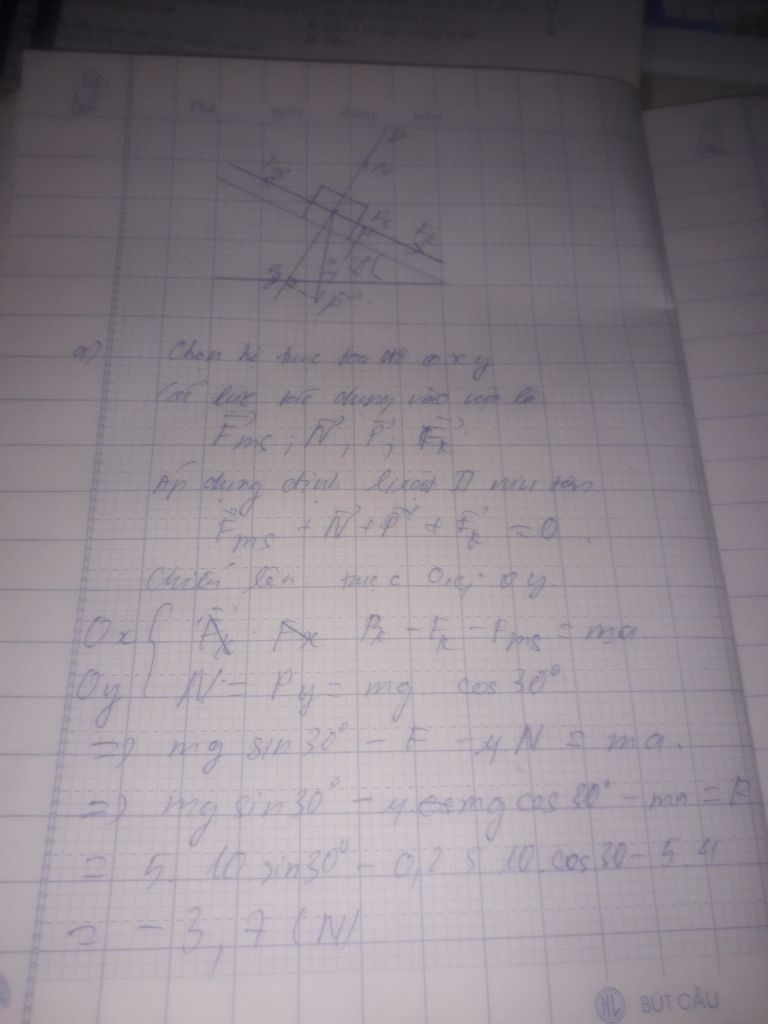 Thứ ngày tháng năm
y
N
Fms
Px
Fk
30
Py
P
a) Chọn hệ trục tọa độ oxy
Các lực tác dụng vào vật là
Fms ; N ; P ; Fk
Áp dụng định luật II niu tơn
Fms + N + P + Fk = 0
Chiếu lên trục Ox; oy
Ox Px - Fk - Fms = ma
Oy N = Py = mg. cos 30°
=> mg sin 30° - F - μN = ma.
=> mg sin 30° - μ mg cos 30° - ma = F
= 5. 10 sin 30° - 0,2. 5 10 cos 30 - 5. 4
= - 3,7 (N)
HL BÚT CẦU